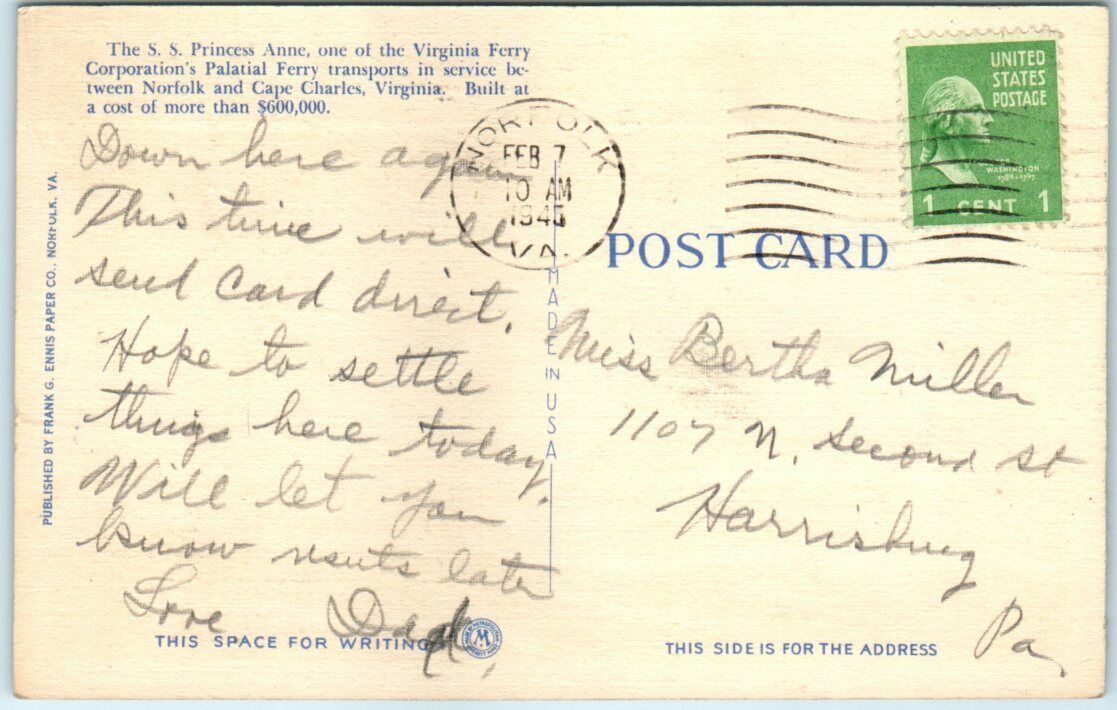 The S. S. Princess Anne, one of the Virginia Ferry
Corporation's Palatial Ferry transports in service be-
tween Norfolk and Cape Charles, Virginia. Built at
a cost of more than $600,000.
Down here again
This time will
send card direct.
Hope to settle
things here today.
Will let you
know later
Love Dad,
THIS SPACE FOR WRITING
PUBLISHED BY FRANK G. ENNIS PAPER CO., NORFOLK, VA.
MADE IN USA
NORFOLK
FEB 7
10 AM
VA.
UNITED
STATES
POSTAGE
WASHINGTON
1789-1797
1 CENT 1
POST CARD
Miss Bertha Miller
1107 N. Second St
Harrisburg
Pa.
THIS SIDE IS FOR THE ADDRESS